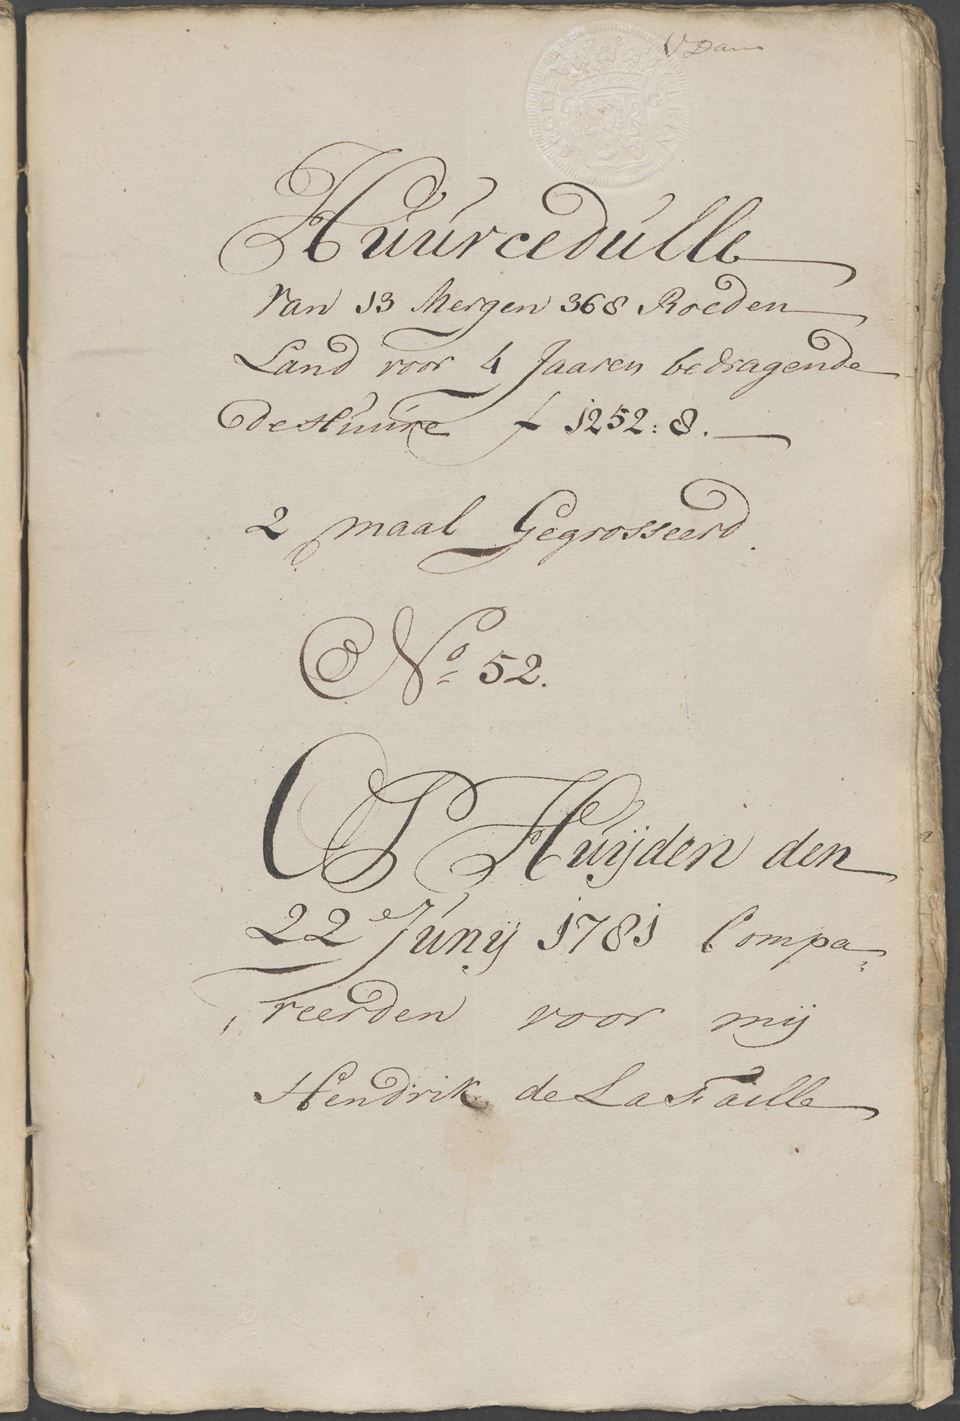 V Dam
Huurcedulle
Van 13 Mergen 368 Roeden
Land voor 4 Jaaren bedragende
de Huure f 1252:8.
2 maal Gegrosseerd.
No. 52.
OP Huijden den
22e Junij 1781 Compa„
„reerden voor mij
Hendrik de La Faille